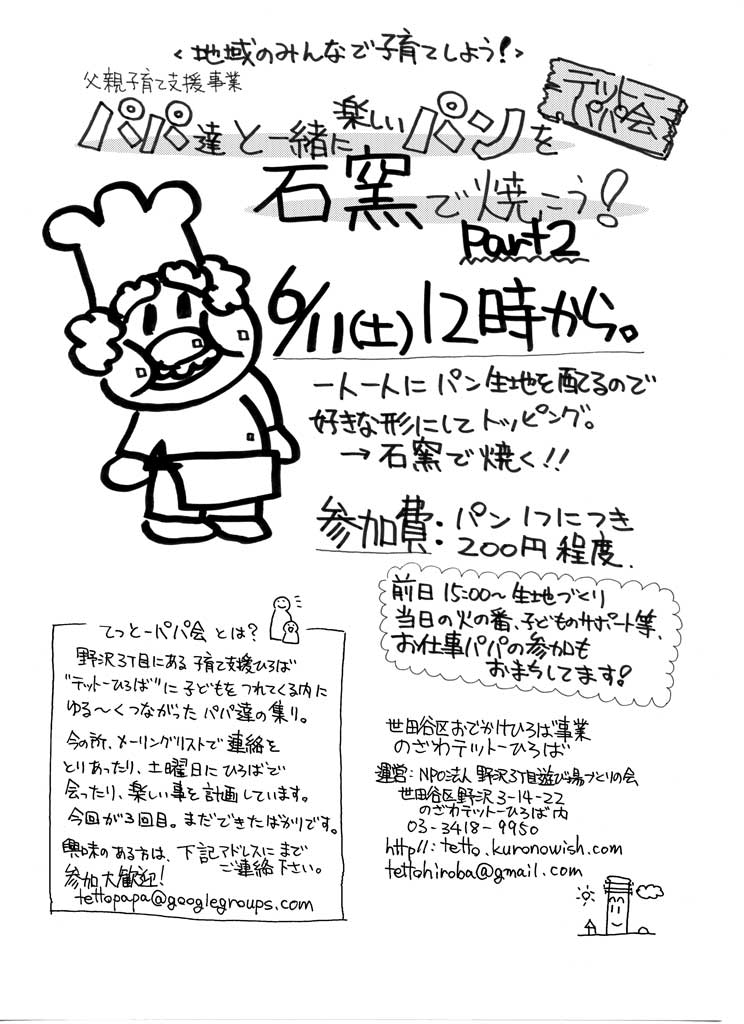 <地域のみんなで子育てしよう!>
父親子育て支援事業
テットー
パパ会
パパ達と一緒に楽しいパンを
石窯で焼こう!
Part2
6/11(土)12時から。
一人一人にパン生地を配るので
好きな形にしてトッピング。
→石窯で焼く!!
参加費:パン1つにつき
200円程度.
前日15:00〜生地づくり
当日の火の番、子どものサポート等、
お仕事パパの参加も
おまちしてます!
てっとーパパ会とは?
野沢3丁目にある子育て支援ひろば
"テットーひろば"に子どもをつれてくる内に
ゆる〜くつながったパパ達の集り。
今の所、メーリングリストで連絡を
とりあったり、土曜日にひろばで
会ったり、楽しい事を計画しています。
今回が3回目。まだできたばかりです。
興味のある方は、下記アドレスにまで
ご連絡下さい。
参加大歓迎!
tettopapa@googlegroups.com
世田谷区おでかけひろば事業
のざわテットーひろば
運営:NPO法人野沢3丁目遊び場づくりの会
世田谷区野沢3-14-22
のざわテットーひろば内
03-3418-9950
http//:tetto.kuronowish.com
tettohiroba@gmail.com